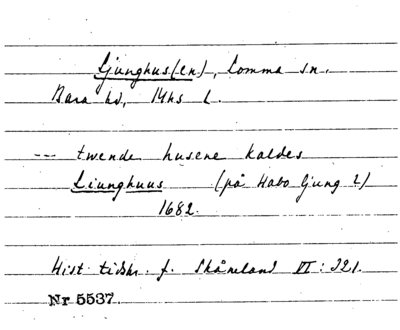 Ljunghus(en), Lomma sn.
Bara hd, Mhs l.
-- twende husene kaldes
Liunghuus (på Habo Ljung?)
1682.
Hist tidskr. f. Skåneland VI: 321.
Nr 5537.